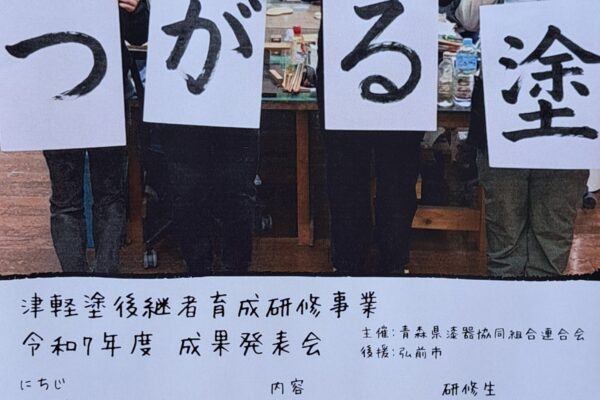 つがる塗
津軽塗後継者育成研修事業
令和7年度 成果発表会
主催:青森県漆器協同組合連合会
後援:弘前市
にちじ 内容 研修生